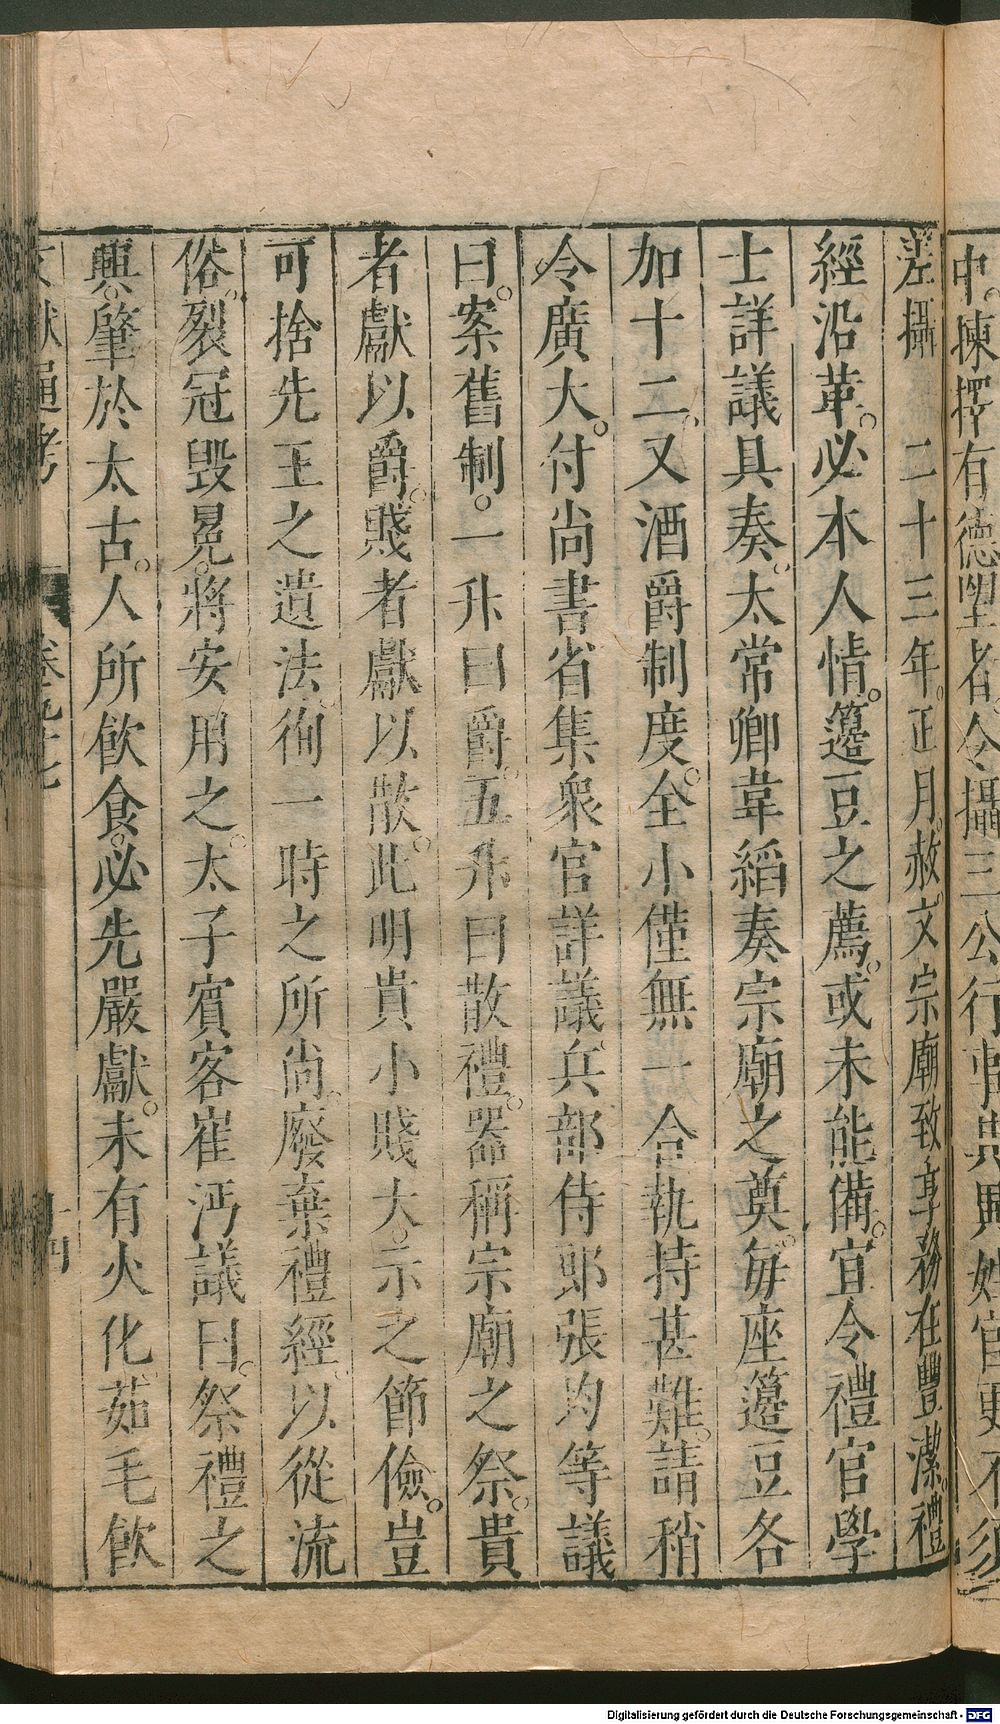 中揀擇有德望者令攝三公行事異
差攝　二十三年正月赦文宗廟致享務在豐潔禮
經沿革必本人情籩豆之薦或未能備宜令禮官學
士詳議具奏太常卿韋縚奏宗廟之奠每座籩豆各
加十二又酒爵制度全小僅無一合執持甚難請稍
令廣大付尚書省集衆官詳議兵部侍郎張均等議
曰案舊制一升曰爵五升曰散禮器稱宗廟之祭貴
者獻以爵賤者獻以散此明貴小賤大示之節儉豈
可捨先王之遺法徇一時之所尚廢棄禮經以從流
俗裂冠毀冕將安用之太子賓客崔沔議曰祭禮之
興肇於太古人所飲食必先嚴獻未有火化茹毛飲
文獻通考　卷九十七　十四
Digitalisierung gefördert durch die Deutsche Forschungsgemeinschaft - DFG